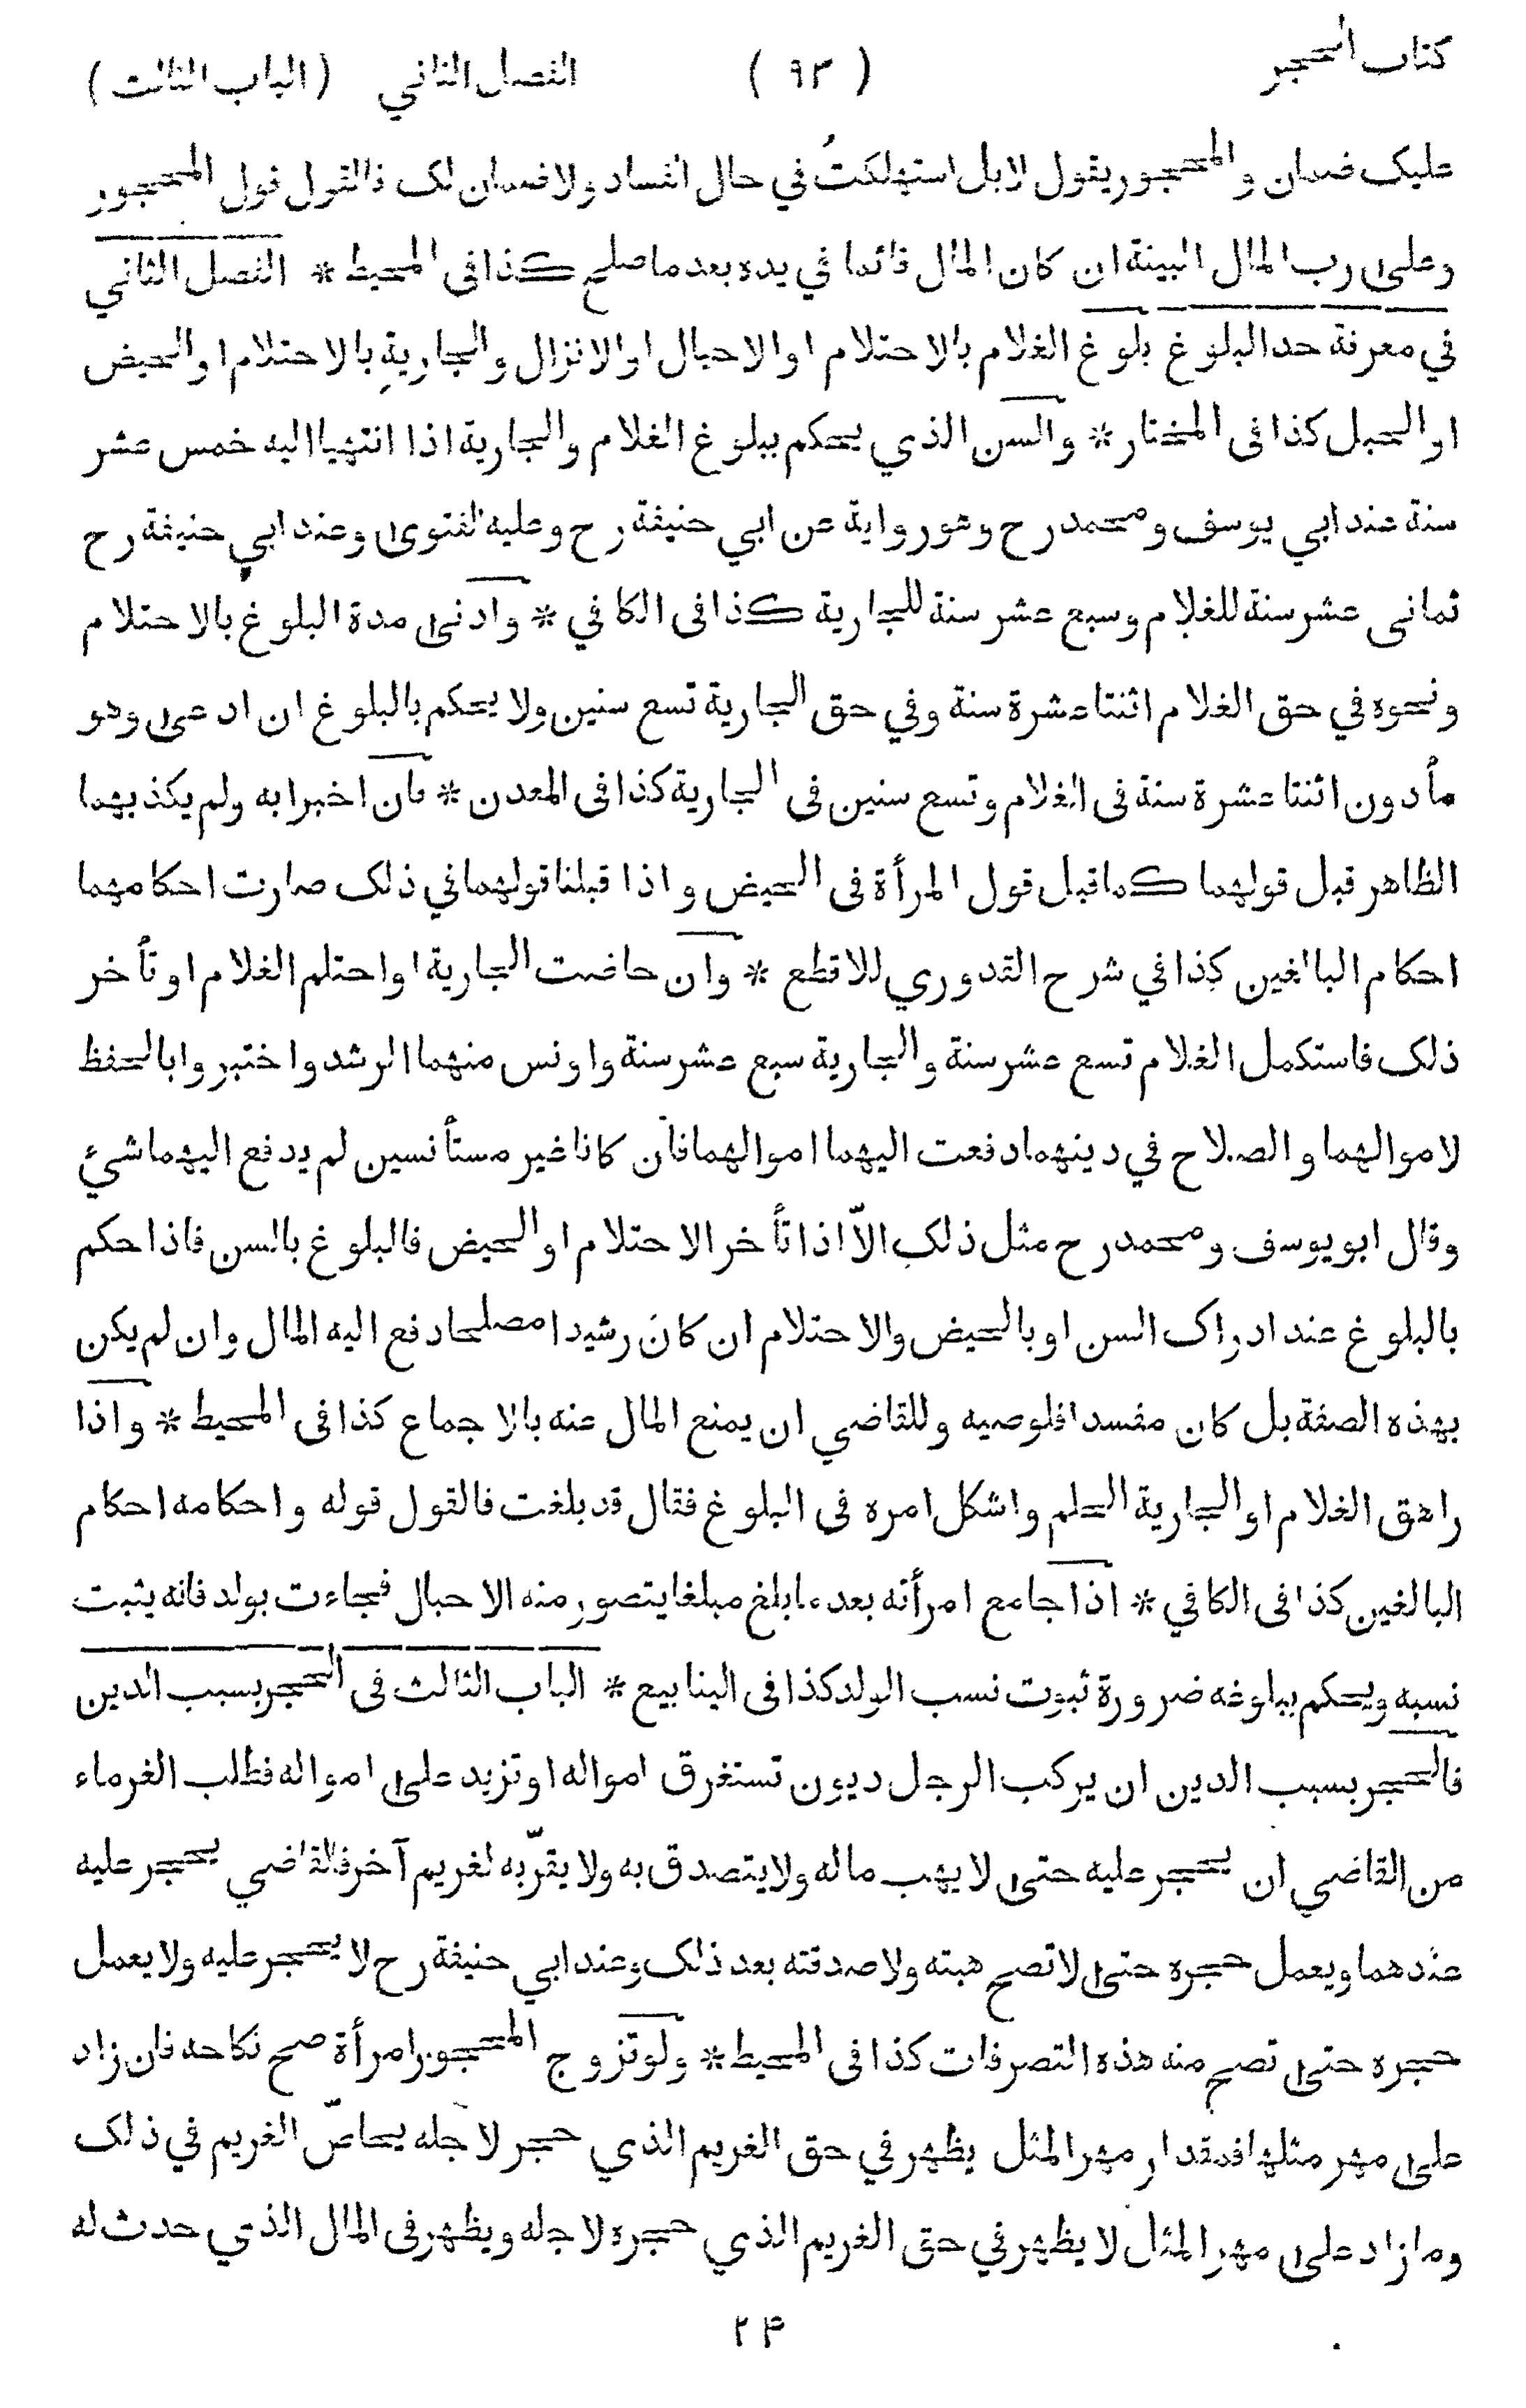 كتاب الحجر ( ٩٣ ) الفصل الثاني ( الباب الثالث )
عليک ضمان والمحجور يقول لا بل استهلكتُ في حال الفساد ولا ضمان لک فالقول قول المحجور
وعلى رب المال البينة ان كان المال قائما في يده بعد ما صلح كذا فى المحيط * الفصل الثاني
في معرفة حد البلوغ بلوغ الغلام بالاحتلام او الاحبال او الانزال والجارية بالاحتلام او الحيض
او الحبل كذا فى المختار * والسن الذي يحكم ببلوغ الغلام والجارية اذا انتهيا اليه خمس عشر
سنة عند ابي يوسف ومحمد رح وهو رواية عن ابي حنيفة رح وعليه الفتوى وعند ابي حنيفة رح
ثمانى عشر سنة للغلام وسبع عشر سنة للجارية كذا فى الكافي * وادنى مدة البلوغ بالاحتلام
ونحوه في حق الغلام اثنتا عشرة سنة وفي حق الجارية تسع سنين ولا يحكم بالبلوغ ان ادعى وهو
مادون اثنتا عشرة سنة فى الغلام وتسع سنين فى الجارية كذا فى المعدن * فان اخبرا به ولم يكذبهما
الظاهر قبل قولهما كما قبل قول المرأة فى الحيض واذا قبلنا قولهما في ذلک صارت احكامهما
احكام البالغين كذا في شرح القدوري للاقطع * وان حاضت الجارية او احتلم الغلام او تأخر
ذلک فاستكمل الغلام تسع عشر سنة والجارية سبع عشر سنة واونس منهما الرشد واختبروا بالحفظ
لاموالهما والصلاح في دينهما دفعت اليهما اموالهما فان كانا غير مستأنسين لم يدفع اليهما شئ
وقال ابو يوسف ومحمد رح مثل ذلک الّا اذا تأخر الاحتلام او الحيض فالبلوغ بالسن فاذا حكم
بالبلوغ عند ادراک السن او بالحيض والاحتلام ان كان رشيدا مصلحا دفع اليه المال وان لم يكن
بهذه الصفة بل كان مفسدا فلوصيه وللقاضي ان يمنع المال عنه بالاجماع كذا فى المحيط * واذا
راهق الغلام او الجارية الحلم واشكل امره فى البلوغ فقال قد بلغت فالقول قوله واحكامه احكام
البالغين كذا فى الكافي * اذا جامع امرأته بعد ما بلغ مبلغا يتصور منه الاحبال فجاءت بولد فانه يثبت
نسبه ويحكم ببلوغه ضرورة ثبوت نسب الولد كذا فى الينابيع * الباب الثالث فى الحجر بسبب الدين
فالحجر بسبب الدين ان يركب الرجل ديون تستغرق امواله او تزيد على امواله فطلب الغرماء
من القاضي ان يحجر عليه حتى لا يهب ماله ولا يتصدق به ولا يقرّ به لغريم آخر فالقاضي يحجر عليه
عندهما ويعمل حجره حتى لا تصح هبته ولا صدقته بعد ذلک وعند ابي حنيفة رح لا يحجر عليه ولا يعمل
حجره حتى تصح منه هذه التصرفات كذا فى المحيط * ولو تزوج المحجور امرأة صح نكاحه فان زاد
على مهر مثلها فمقدار مهر المثل يظهر في حق الغريم الذي حجر لاجله يحاصّ الغريم في ذلک
وما زاد على مهر المثل لا يظهر في حق الغريم الذي حجره لاجله ويظهر فى المال الذي حدث له
٢۴